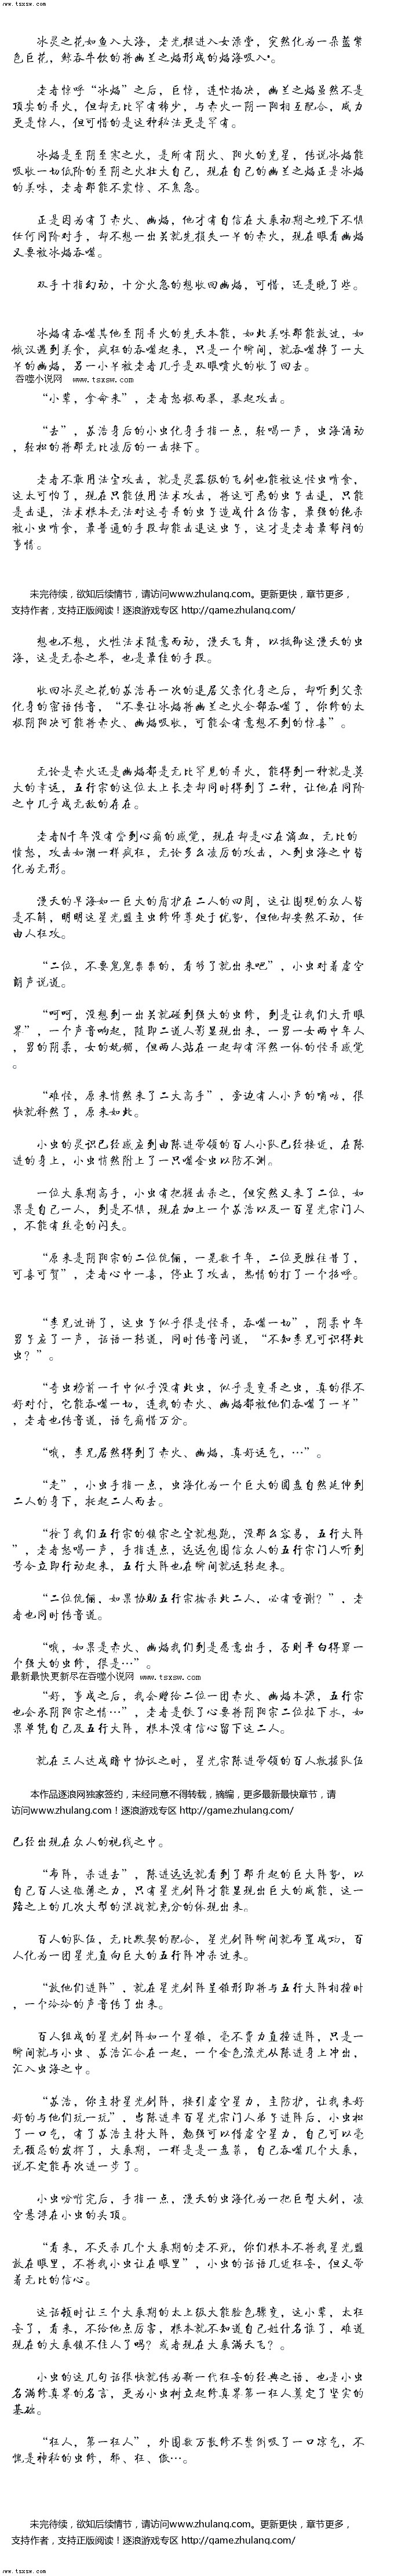 www.tsxsw.com
冰灵之花如鱼入大海，老光棍进入女澡堂，突然化为一朵蓝紫
色巨花，鲸吞牛饮的将幽兰之焰形成的焰海吸入。
老者惊呼“冰焰”之后，巨惊，连忙掐决，幽兰之焰虽然不是
顶尖的异火，但却无比罕有稀少，与赤火一阴一阳相互配合，威力
更是惊人，但可惜的是这种秘法更是罕有。
冰焰是至阴至寒之火，是所有阴火、阳火的克星，传说冰焰能
吸收一切低阶的至阴之火壮大自己，现在自己的幽兰之焰正是冰焰
的美味，老者那能不震惊、不焦急。
正是因为有了赤火、幽焰，他才有自信在大乘初期之境下不惧
任何同阶对手，却不想一出关就先损失一半的赤火，现在眼看幽焰
又要被冰焰吞噬。
双手十指幻动，十分火急的想收回幽焰，可惜，还是晚了些。
冰焰有吞噬其他至阴异火的先天本能，如此美味那能放过，如
饿汉遇到美食，疯狂的吞噬起来，只是一个瞬间，就吞噬掉了一大
半的幽焰，另一小半被老者几乎是双眼喷火的收了回去。
吞噬小说网 www.tsxsw.com
“小辈，拿命来”，老者怒极而暴，暴起攻击。
“去”，苏浩身后的小虫化身手指一点，轻喝一声，虫海涌动
，轻松的将那无比凌厉的一击接下。
老者不敢用法宝攻击，就是灵器级的飞剑也能被这怪虫啃食，
这太可怕了，现在只能使用法术攻击，将这可恶的虫子击退，只能
是击退，法术根本无法对这奇异的虫子造成什么伤害，最强的绝杀
被小虫啃食，最普通的手段却能击退这虫子，这才是老者最郁闷的
事情。
未完待续，欲知后续情节，请访问www.zhulang.com。更新更快，章节更多，
支持作者，支持正版阅读！逐浪游戏专区 http://game.zhulang.com/
想也不想，火性法术随意而动，漫天飞舞，以抵御这漫天的虫
海，这是无奈之举，也是最佳的手段。
收回冰灵之花的苏浩再一次的退居父亲化身之后，却听到父亲
化身的密语传音，“不要让冰焰将幽兰之火全部吞噬了，你修的太
极阴阳决可能将赤火、幽焰吸收，可能会有意想不到的惊喜”。
无论是赤火还是幽焰都是无比罕见的异火，能得到一种就是莫
大的幸运，五行宗的这位太上长老却同时得到了二种，让他在同阶
之中几乎成无敌的存在。
老者N千年没有尝到心痛的感觉，现在却是心在滴血，无比的
愤怒，攻击如潮一样疯狂，无论多么凌厉的攻击，入到虫海之中皆
化为无形。
漫天的旱海如一巨大的盾护在二人的四周，这让围观的众人皆
是不解，明明这星光盟主虫修师尊处于优势，但他却安然不动，任
由人狂攻。
“二位，不要鬼鬼祟祟的，看够了就出来吧”，小虫对着虚空
朗声说道。
“呵呵，没想到一出关就碰到强大的虫修，到是让我们大开眼
界”，一个声音响起，随即二道人影显现出来，一男一女两中年人
，男的阴柔，女的妩媚，但两人站在一起却有浑然一体的怪异感觉
。
“难怪，原来悄然来了二大高手”，旁边有人小声的嘀咕，很
快就释然了，原来如此。
小虫的灵识已经感应到由陈进带领的百人小队已经接近，在陈
进的身上，小虫悄然附上了一只噬金虫以防不测。
一位大乘期高手，小虫有把握击杀之，但突然又来了二位，如
果是自己一人，到是不惧，现在加上一个苏浩以及一百星光宗门人
，不能有丝毫的闪失。
“原来是阴阳宗的二位伉俪，一晃数千年，二位更胜往昔了，
可喜可贺”，老者心中一喜，停止了攻击，热情的打了一个招呼。
“季兄过讲了，这虫子似乎很是怪异，吞噬一切”，阴柔中年
男子应了一声，话语一转道，同时传音问道，“不知季兄可识得此
虫？”。
“奇虫榜前一千中似乎没有此虫，似乎是变异之虫，真的很不
好对付，它能吞噬一切，连我的赤火、幽焰都被他们吞噬了一半”
，老者也传音道，语气痛惜万分。
“哦，季兄居然得到了赤火、幽焰，真好运气，…”。
“走”，小虫手指一点，虫海化为一个巨大的圆盘自然延伸到
二人的身下，托起二人而去。
“抢了我们五行宗的镇宗之宝就想跑，没那么容易，五行大阵
”，老者怒喝一声，手指连点，远远包围信众人的五行宗门人听到
号令立即行动起来，五行大阵也在瞬间就运转起来。
“二位伉俪，如果协助五行宗擒杀此二人，必有重谢？”，老
者也同时传音道。
“哦，如果是赤火、幽焰我们到是愿意出手，否则平白得罪一
个强大的虫修，很是…”。
最新最快更新尽在吞噬小说网 www.tsxsw.com
“好，事成之后，我会赠给二位一团赤火、幽焰本源，五行宗
也会承阴阳宗之情…”，老者是铁了心要将阴阳宗二位拉下水，如
果单凭自己及五行大阵，根本没有信心留下这二人。
就在三人达成暗中协议之时，星光宗陈进带领的百人救援队伍
本作品逐浪网独家签约，未经同意不得转载，摘编，更多最新最快章节，请
访问www.zhulang.com！逐浪游戏专区 http://game.zhulang.com/
已经出现在众人的视线之中。
“布阵，杀进去”，陈进远远就看到了那升起的巨大阵势，以
自己百人这微薄之力，只有星光剑阵才能显现出巨大的威能，这一
路之上的几次大型的混战就充分的体现出来。
百人的队伍，无比默契的配合，星光剑阵瞬间就布置成功，百
人化为一团星光直向巨大的五行阵冲杀过来。
“放他们进阵”，就在星光剑阵呈锥形即将与五行大阵相撞时
，一个冷冷的声音传了出来。
百人组成的星光剑阵如一个星锥，毫不费力直撞进阵，只是一
瞬间就与小虫、苏浩汇合在一起，一个金色流光从陈进身上冲出，
汇入虫海之中。
“苏浩，你主持星光剑阵，接引虚空星力，主防护，让我来好
好的与他们玩一玩”，当陈进率百星光宗门人弟子进阵后，小虫松
了一口气，有了苏浩主持大阵，勉强可以借虚空星力，自己可以毫
无顾忌的发挥了，大乘期，一样是是一盘菜，自己吞噬几个大乘，
说不定能再次进一步了。
小虫吩咐完后，手指一点，漫天的虫海化为一把巨型大剑，凌
空悬浮在小虫的头顶。
“看来，不灭杀几个大乘期的老不死，你们根本不将我星光盟
放在眼里，不将我小虫让在眼里”，小虫的话语几近狂妄，但又带
着无比的信心。
这话顿时让三个大乘期的太上级大能脸色骤变，这小辈，太狂
妄了，看来，不给他点厉害，根本就不知道自己姓什名谁了，难道
现在的大乘镇不住人了吗？或者现在大乘满天飞？。
小虫的这几句话很快就传为新一代狂妄的经典之语，也是小虫
名满修真界的名言，更为小虫树立起修真界第一狂人奠定了坚实的
基础。
“狂人，第一狂人”，外围数万散修不禁倒吸了一口凉气，不
愧是神秘的虫修，邪、狂、傲…。
未完待续，欲知后续情节，请访问www.zhulang.com。更新更快，章节更多，
支持作者，支持正版阅读！逐浪游戏专区 http://game.zhulang.com/
www.tsxsw.com